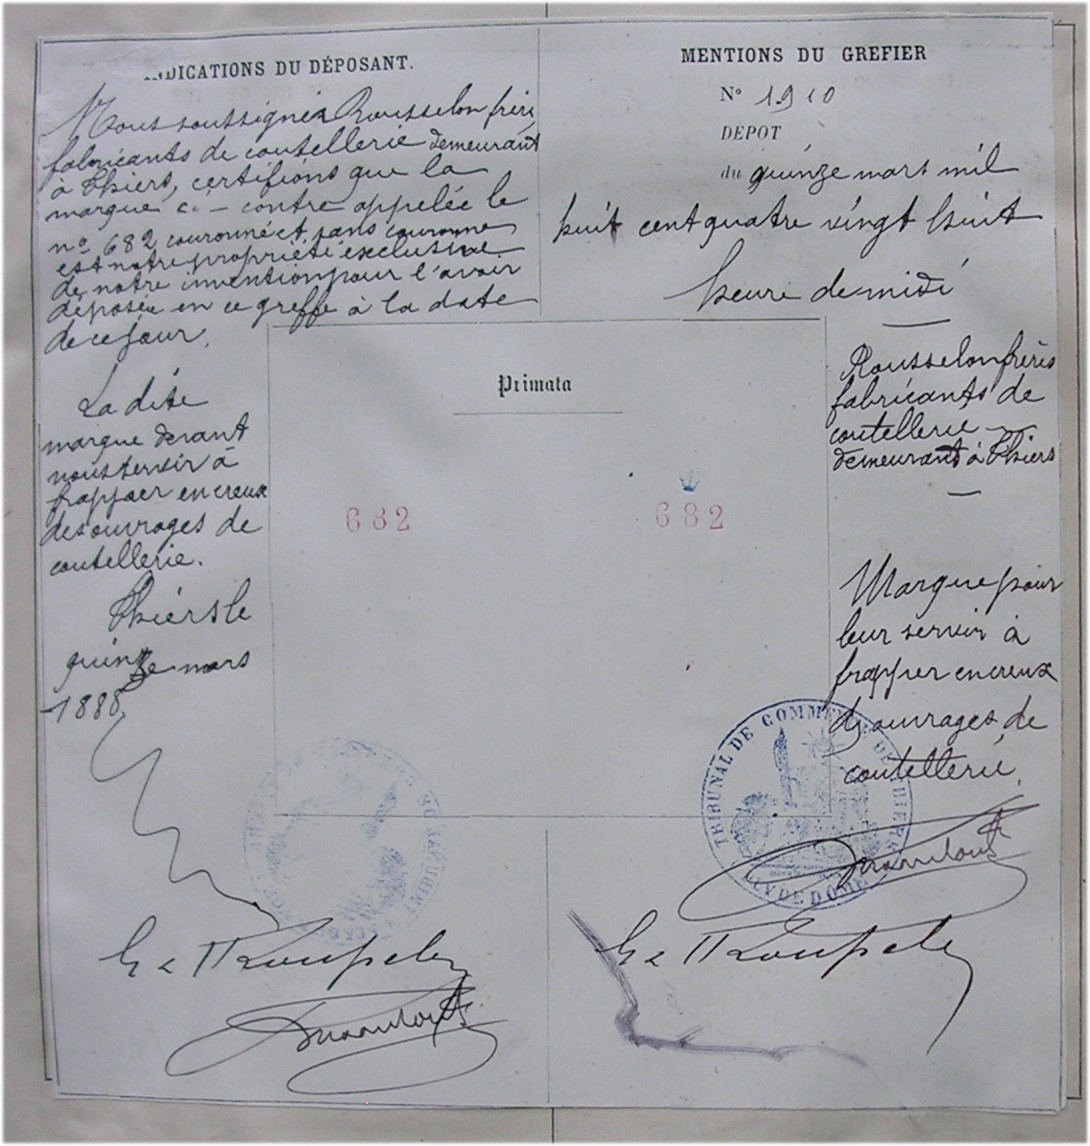 INDICATIONS DU DÉPOSANT.
Nous soussignés Rousselon frères
fabricants de coutellerie demeurant
à Thiers, certifions que la
marque ci-contre appelée le
nº 682 couronné et sans couronne
est notre propriété exclusive
de notre invention pour l'avoir
déposée en ce greffe à la date
de ce jour.
La dite
marque devant
nous servir à
frapper en creux
des ouvrages de
coutellerie.
Thiers le
quinze mars
1888
MENTIONS DU GREFIER
Nº 1910
DÉPOT
du quinze mars mil
huit cent quatre vingt huit
heure de midi
Primata
682
682
Rousselon frères
fabricants de
coutellerie
demeurant à Thiers
Marque pour
leur servir à
frapper en creux
des ouvrages de
coutellerie.
TRIBUNAL DE COMMERCE DE THIERS
PUY DE DOME